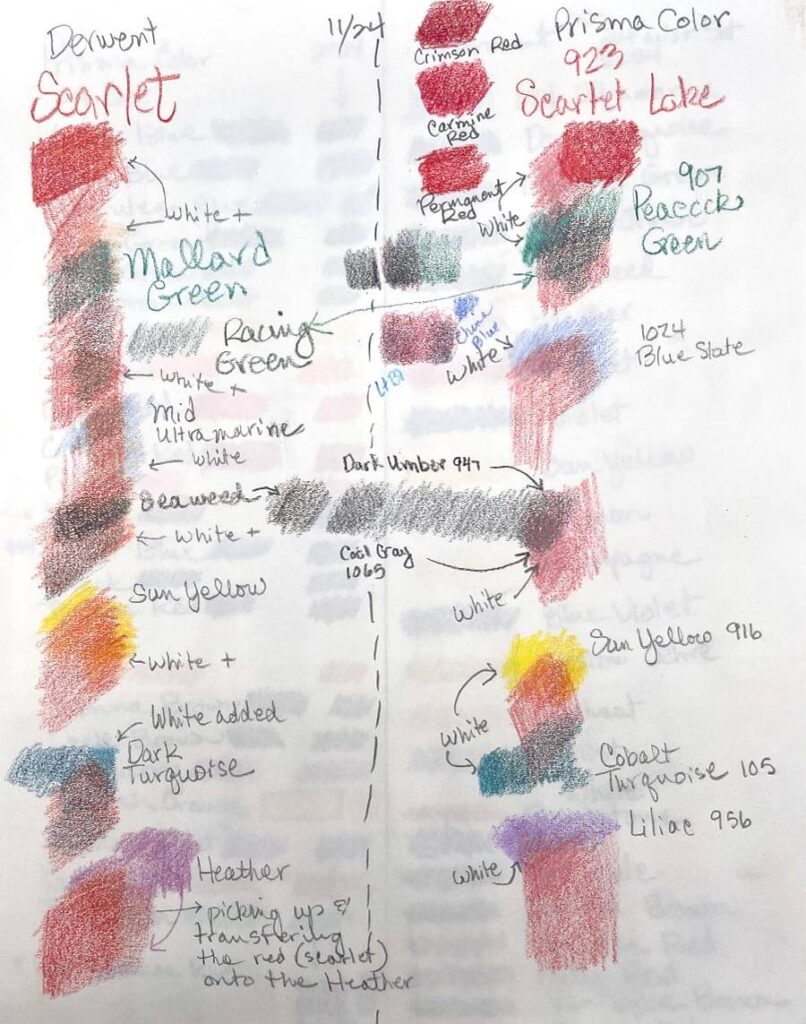 Derwent
Scarlet
White +
Mallard
Green
Racing
Green
White +
Mid
Ultramarine
White
Seaweed
White +
Sun Yellow
White +
White added
Dark
Turquoise
Heather
picking up &
transfering
the red (scarlet)
onto the Heather
11/24
Crimson Red
Carmine
Red
Permanent
Red
Prisma Color
923
Scarlet Lake
White
907
Peacock
Green
China
Blue
White
1024
Blue Slate
Dark Umber 947
Cool Gray
1065
White
Sun Yellow 916
White
Cobalt
Turquoise 105
Liliac 956
White